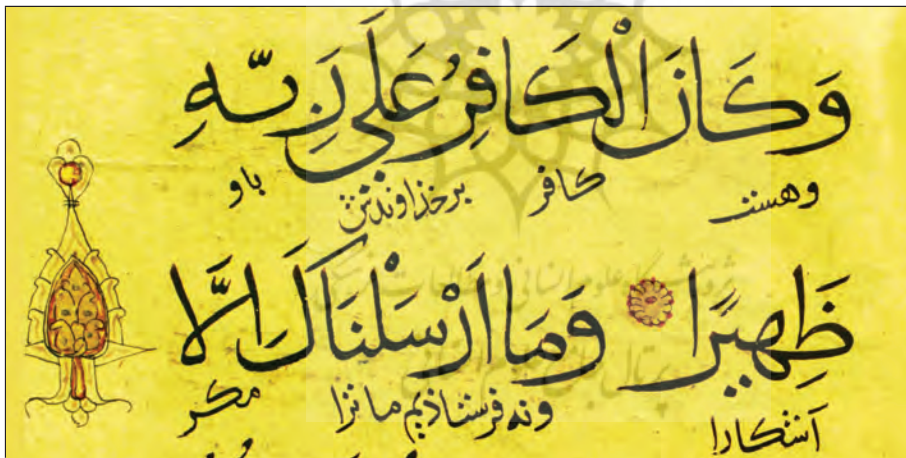 وَكَانَ الْكَافِرُ عَلَى رَبِّهِ
و هست کافر بر خذاوندش باو
ظَهِيرًا وَمَا اَرْسَلْنَاكَ اِلَّا
آشکارا و نه فرستاذیم ما ترا مکر